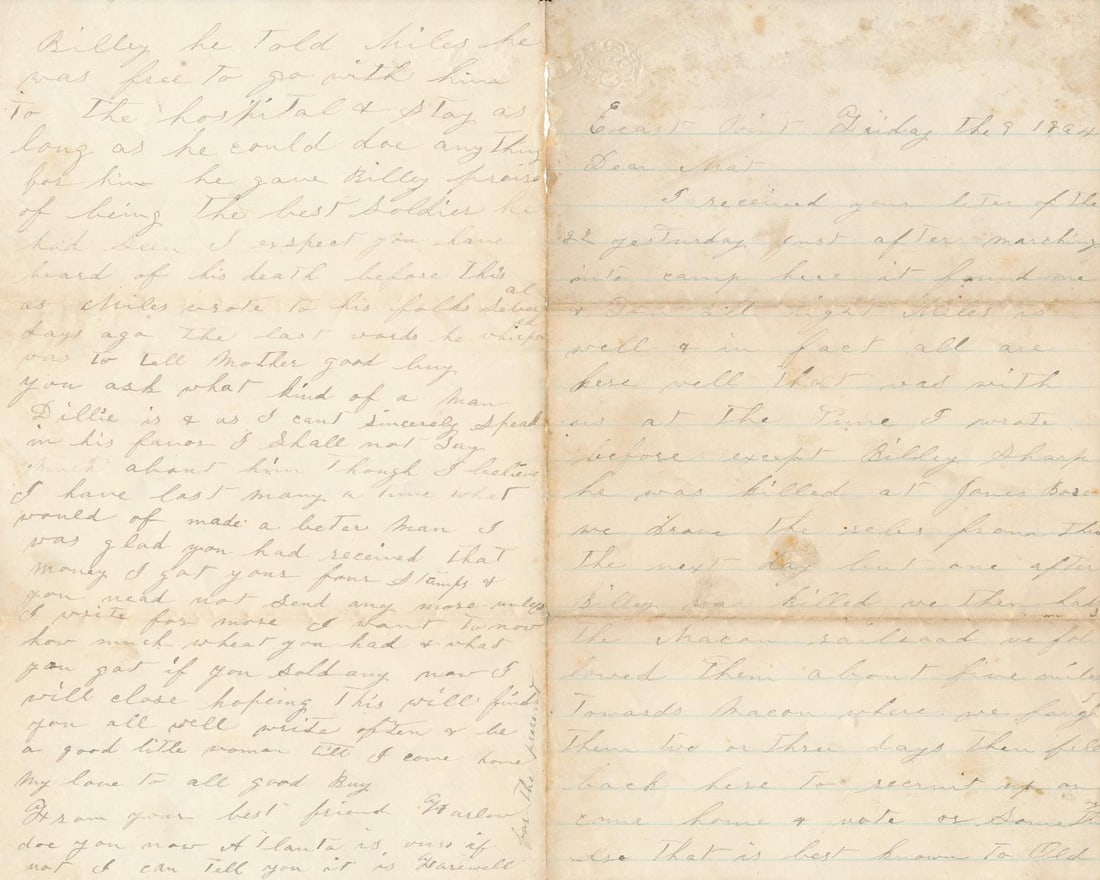 East Point Friday the 9 1864
Dear Mat
I received your leter of the
22 yesturday just after marching
into camp here it found me
& Tom all right Miles is
well & in fact all are
here well that was with
us at the time I wrote
before except Billey Sharp
he was killed at Jones Boro
we drove the rebs from thir
the next day but one after
Billey was killed we then had
the Macon railroad we fol
lowed them about five miles
towards Macon where we faught
them two or three days then fell
back here to recruit up or
come home & vote or some th
else that is best known to Old
Billey he told Miles he
was free to go with him
to the hospital & stay as
long as he could doe any thing
for him he gave Billey praise
of being the best soldier he
had seen I expect you have
heard of his death before this
as Miles wrote to his folks several
days ago the last words he whisperd
was to tell Mother good buy
you ask what kind of a man
Dillie is & as I cant sincerely speak
in his favor I shall not say
much about him though I believe
I have lost many a time what
would of made a beter man I
was glad you had received that
money I got your four stamps &
you nead not send any more unless
I write for more I want to now
how much wheat you had & what
you got if you sold any now I
will close hopeing this will find
you all well write often & be
a good little woman till I come home
my love to all good Buy
From your best friend Harlow
doe you now Atlanta is ours if
not I can tell you it is Farewell
for the present